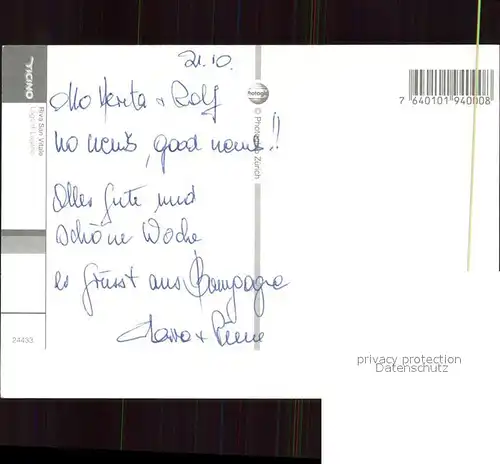 21.10.
Hallo Verita + Rolf
no news, good news!!
Alles Gute und
schöne Woche
es grüsst aus
+
TICINO
Riva San Vitale
Lago di Lugano
24433
© Photoglob Zürich
7 640101 940008
privacy protection
Datenschutz